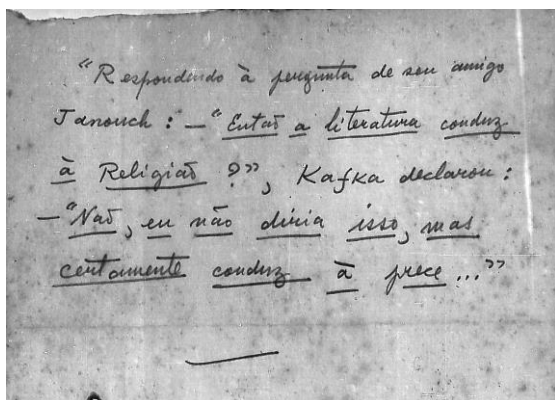 "Respondendo à pergunta de seu amigo
Janouch: — "Então a literatura conduz
à Religião?", Kafka declarou:
— "Não, eu não diria isso, mas
certamente conduz à prece..."